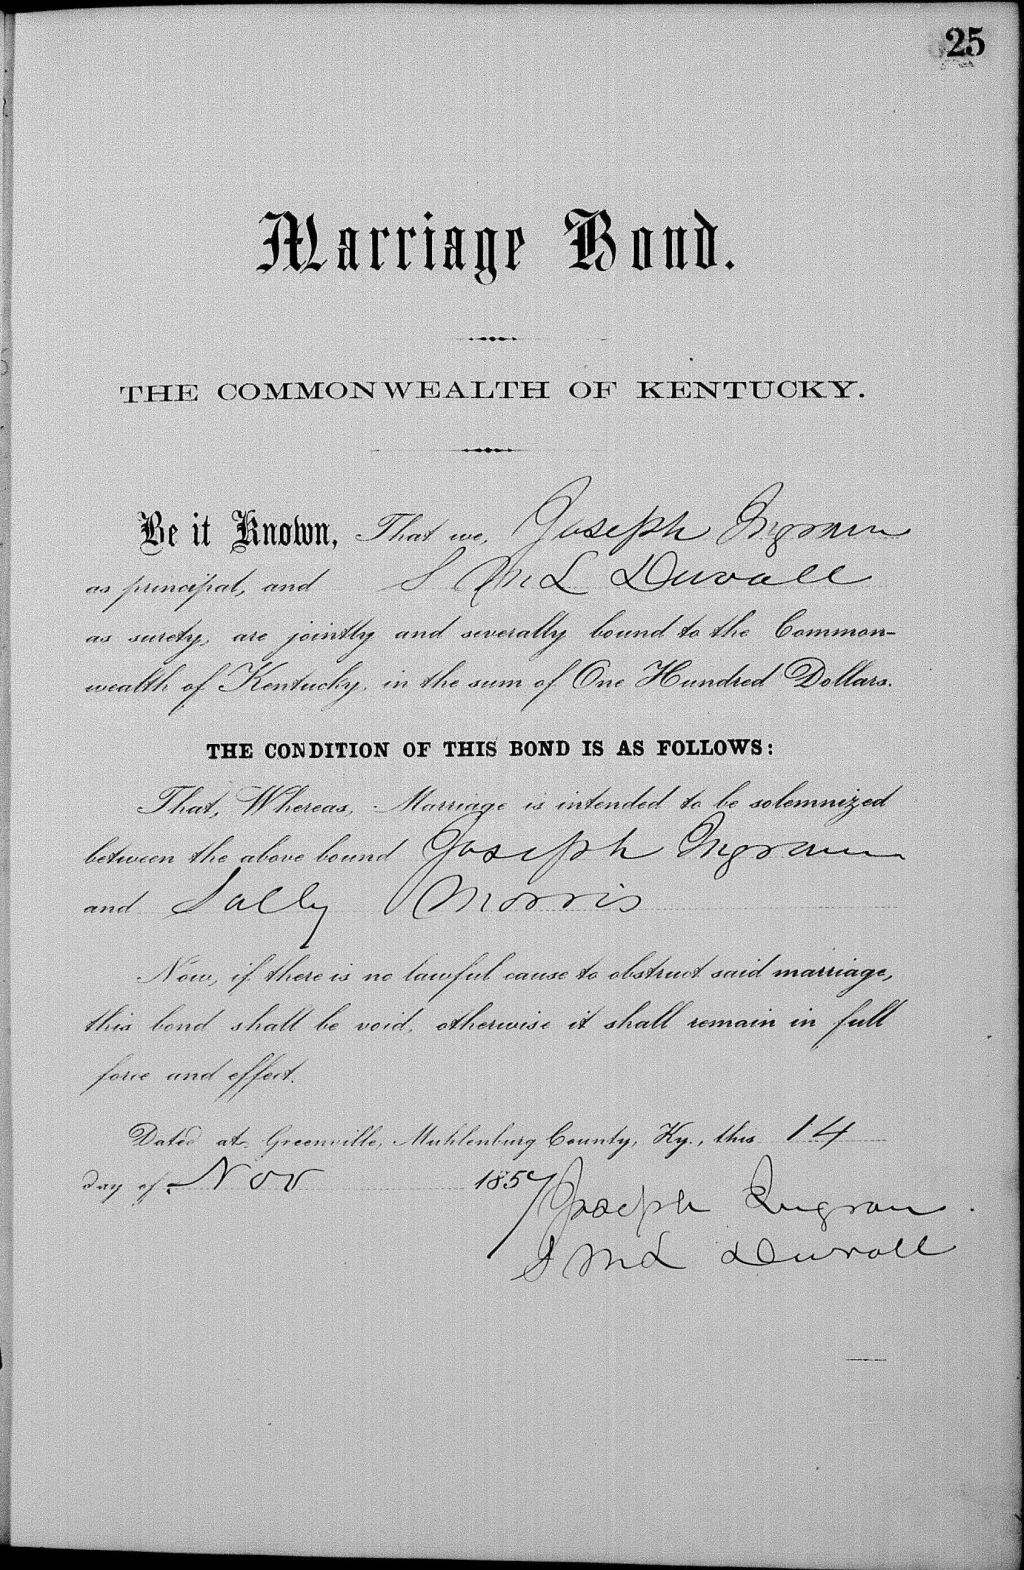 25
Marriage Bond.
THE COMMONWEALTH OF KENTUCKY.
Be it Known, That we, Joseph Ingram
as principal, and S McL Duvall
as surety, are jointly and severally bound to the Common-
wealth of Kentucky, in the sum of One Hundred Dollars.
THE CONDITION OF THIS BOND IS AS FOLLOWS:
That, Whereas, Marriage is intended to be solemnized
between the above bound Joseph Ingram
and Sally Morris
Now, if there is no lawful cause to obstruct said marriage,
this bond shall be void, otherwise it shall remain in full
force and effect.
Dated at Greenville, Muhlenburg County, Ky., this 14
day of Nov 1857
Joseph Ingram
S McL Duvall